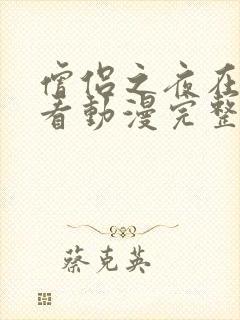 僧侶之夜在
看動漫完整
蔡克英